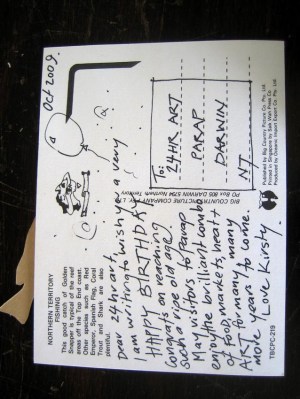 Oct 2009.
NORTHERN TERRITORY
FISHING
This good catch of Golden
Snapper is typical of the reef
areas off the Top End coast.
Other species such as Red
Emperor, Spanish Flag, Coral
Trout and Shark are also
plentiful.
Dear 24hr art,
I am writing to wish you a very
HAPPY BIRTHDAY
Congrats on reaching
such a ripe old age.
Many visitors to Parap
enjoy the brilliant combo
of food, markets, heat
ART for many many
more years to come.
Love Kirsty.
BIG COUNTRY PICTURE COMPANY PTY. LTD.
PO Box 805 DARWIN 5794 Northern Territory
To:
24HR ART
PARAP
DARWIN
NT
Published by Big Country Picture Co. Pty. Ltd.
Printed in Singapore by Siak Wah Press Co.
Produced by Oceanic Import Export Co. Pty. Ltd.
TBCPC-219